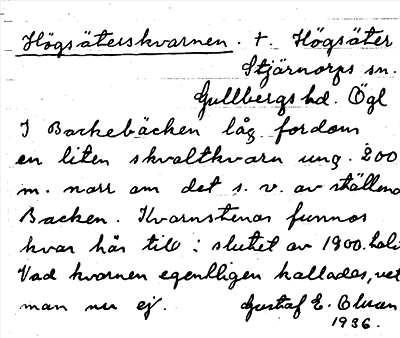 Högsäterskvarnen. +. Högsäter
Stjärnorps sn.
Gullbergs hd. Ögl
I Backebäcken låg fordom
en liten skvaltkvarn ung. 200
m. norr om det s. v. av
Backen. Kvarnstenar funnos
kvar här till i slutet av 1900. 
Vad kvarnen egentligen kallades, vet
man nu ej. Gustaf E. Olsson
1936.